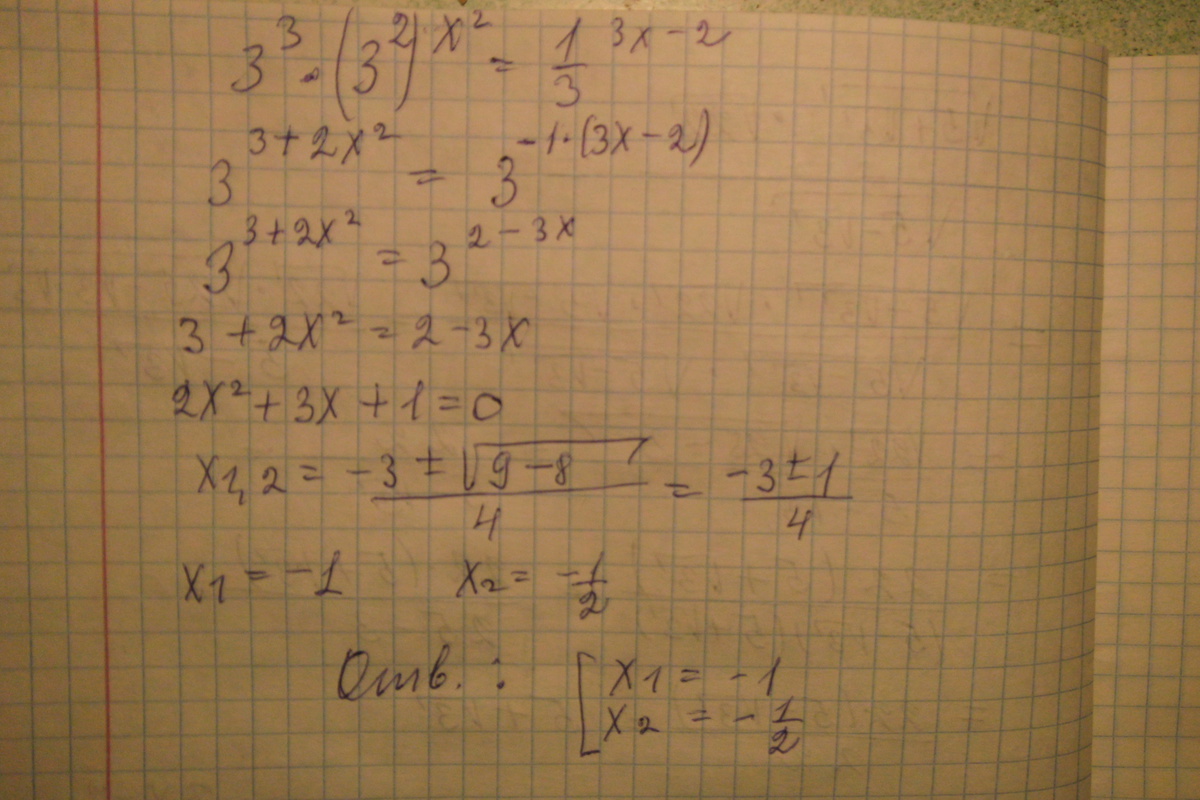 3³ · (3²)^x² = 1/3 ^3x-2
3^3+2x² = 3^-1·(3x-2)
3^3+2x² = 3^2-3x
3 + 2x² = 2 - 3x
2x² + 3x + 1 = 0
x1,2 = -3 ± √9-8 / 4 = -3 ± 1 / 4
x1 = -1 x2 = -1/2
Отв.: [ x1 = -1
x2 = -1/2